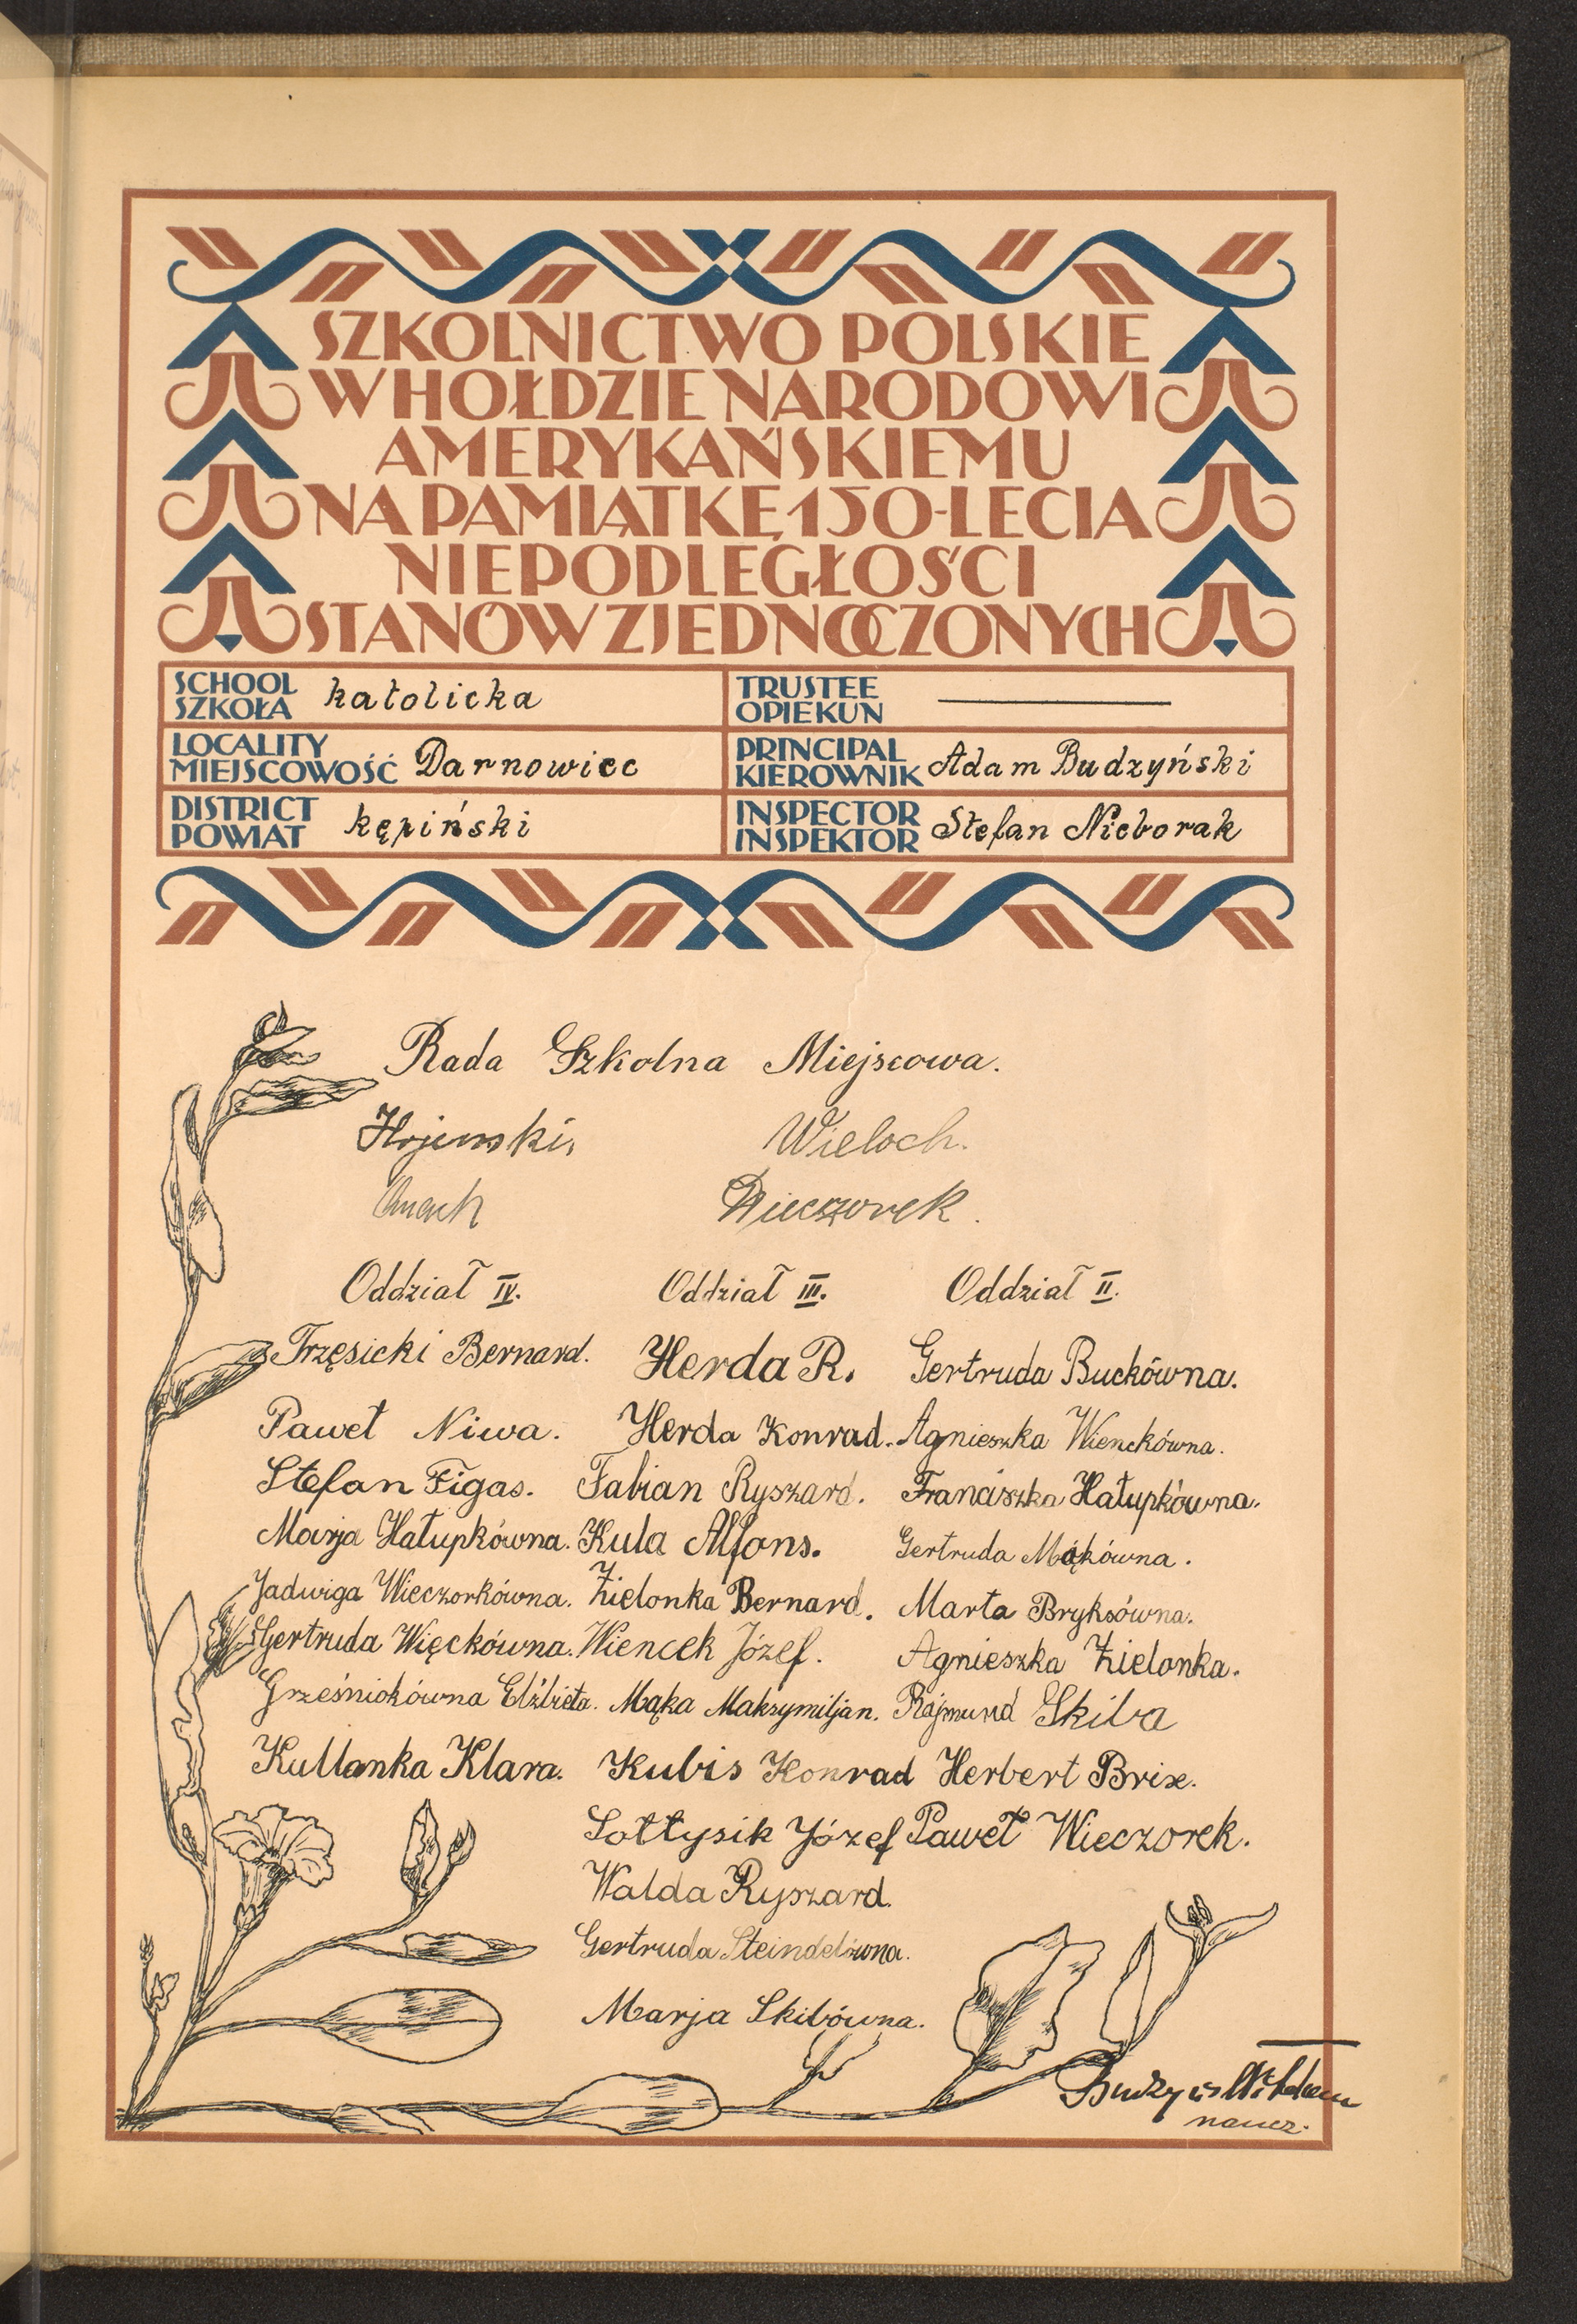 SZKOLNICTWO POLSKIE
W HOŁDZIE NARODOWI
AMERYKAŃSKIEMU
NA PAMIĄTKĘ 150-LECIA
NIEPODLEGŁOŚCI
STANÓW ZJEDNOCZONYCH
SCHOOL
SZKOŁA katolicka
TRUSTEE
OPIEKUN
LOCALITY
MIEJSCOWOŚĆ Darnowiec
PRINCIPAL
KIEROWNIK Adam Budzyński
DISTRICT
POWIAT kępiński
INSPECTOR
INSPEKTOR Stefan Nieborak
Rada Szkolna Miejscowa.
Wieloch.
Wieczorek.
Oddział IV. Oddział III. Oddział II.
Trzęsicki Bernard. Herda R. Gertruda Buckówna.
Paweł Niwa. Herda Konrad. Agnieszka Wienckówna.
Stefan Figas. Fabian Ryszard. Franciszka Hałupkówna.
Marja Hałupkówna. Kula Alfons. Gertruda Mąkówna.
Jadwiga Wieczorkówna. Zielonka Bernard. Marta Bryksówna.
Gertruda Więckówna. Wiencek Józef. Agnieszka Zielonka.
Grześniokówna Elżbieta. Mąka Maksymiljan. Rajmund Skiba
Kullanka Klara. Kubis Konrad Herbert Brix.
Sołtysik Józef Paweł Wieczorek.
Walda Ryszard.
Gertruda Steindelówna.
Marja Skibówna.
naucz.